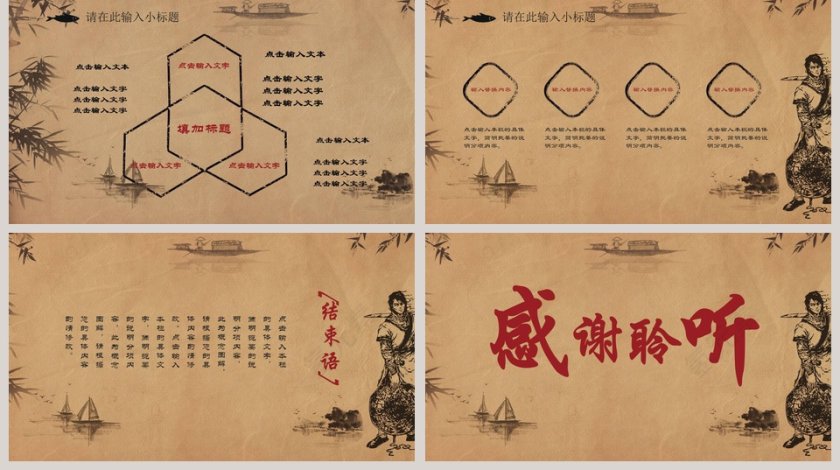 请在此输入小标题
点击输入文本
点击输入文字
点击输入文字
点击输入文字
点击输入文字
填加标题
点击输入文字
点击输入文字
点击输入文本
点击输入文字
点击输入文字
点击输入文字
点击输入文本
点击输入文字
点击输入文字
点击输入文字
请在此输入小标题
输入替换内容
输入替换内容
输入替换内容
输入替换内容
点击输入本栏的具体
文字，简明扼要的说
明分项内容。
点击输入本栏的具体
文字，简明扼要的说
明分项内容。
点击输入本栏的具体
文字，简明扼要的说
明分项内容。
点击输入本栏的具体
文字，简明扼要的说
明分项内容。
结束语
点击输入本栏
的具体文字，
简明扼要的说
明分项内容，
此为概念图解，
请根据您的具
体内容酌情修
改。点击输入
本栏的具体文
字，简明扼要
的说明分项内
容，此为概念
图解，请根据
您的具体内容
酌情修改。
感谢聆听